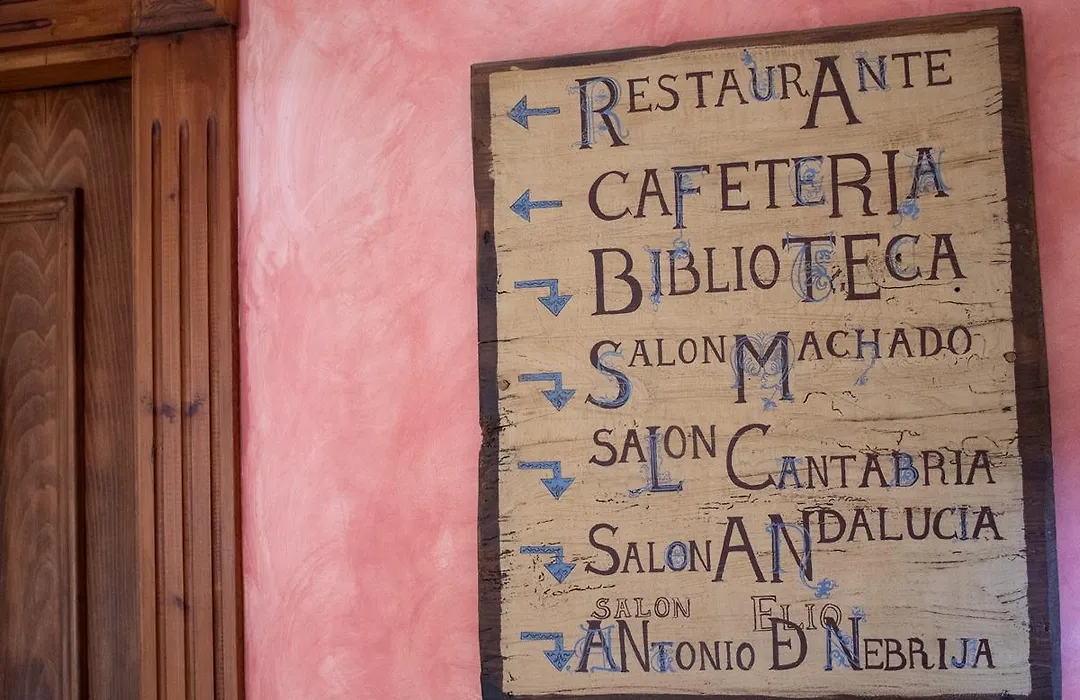 RESTAURANTE
CAFETERIA
BIBLIOTECA
SALON MACHADO
SALON CANTABRIA
SALON ANDALUCIA
SALON ELIO
ANTONIO D NEBRIJA